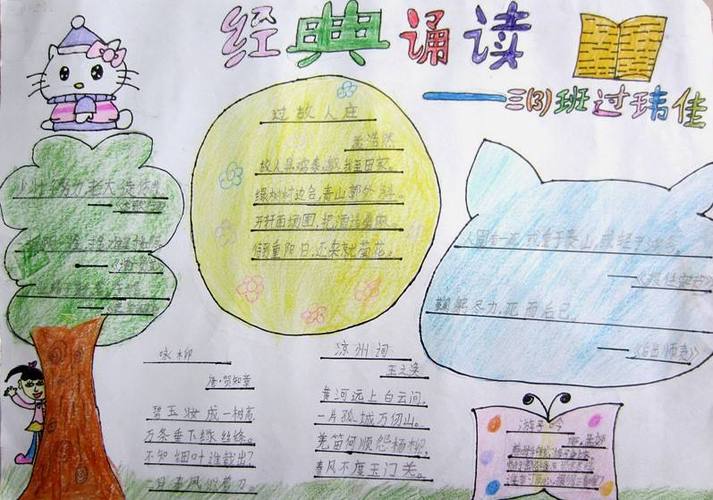 经典诵读
——三(3)班过玮佳
过故人庄
孟浩然
故人具鸡黍,邀我至田家。
绿树村边合,青山郭外斜。
开轩面场圃,把酒话桑麻。
待到重阳日,还来就菊花。
努力,老大徒伤悲。
人固有一死,或重于泰山,或轻于鸿毛。
——《报任安书》
鞠躬尽力,死而后已。
出师表》
咏柳
唐·贺知章
碧玉妆成一树高,
万条垂下绿丝绦。
不知细叶谁裁出?
二月春风似剪刀。
凉州词
王之涣
黄河远上白云间,
一片孤城万仞山。
羌笛何顺怨杨柳,
春风不度玉门关。
游子吟
唐·孟郊